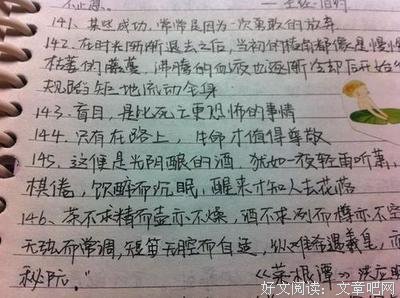 141、某些成功，常常是因为一次勇敢的放弃
142、在时光渐渐退去之后，当初的
枯萎的藤蔓，沸腾的血液也逐渐冷却后开始
规蹈矩地流动全身
143、盲目，是比死亡更恐怖的事情
144、只有在路上，生命才值得尊敬
145、这便是光阴酿的酒，犹如一夜轻雨听落，
棋倦，饮醉而沉眠，醒来才知人去花落
146、茶不求精而壶亦不燥，酒不求冽而樽亦不空
无弦而常调，短笛无腔而自适，纵难超羲皇，亦
嵇阮。"《菜根谭》洪应明
好文阅读：文章吧网